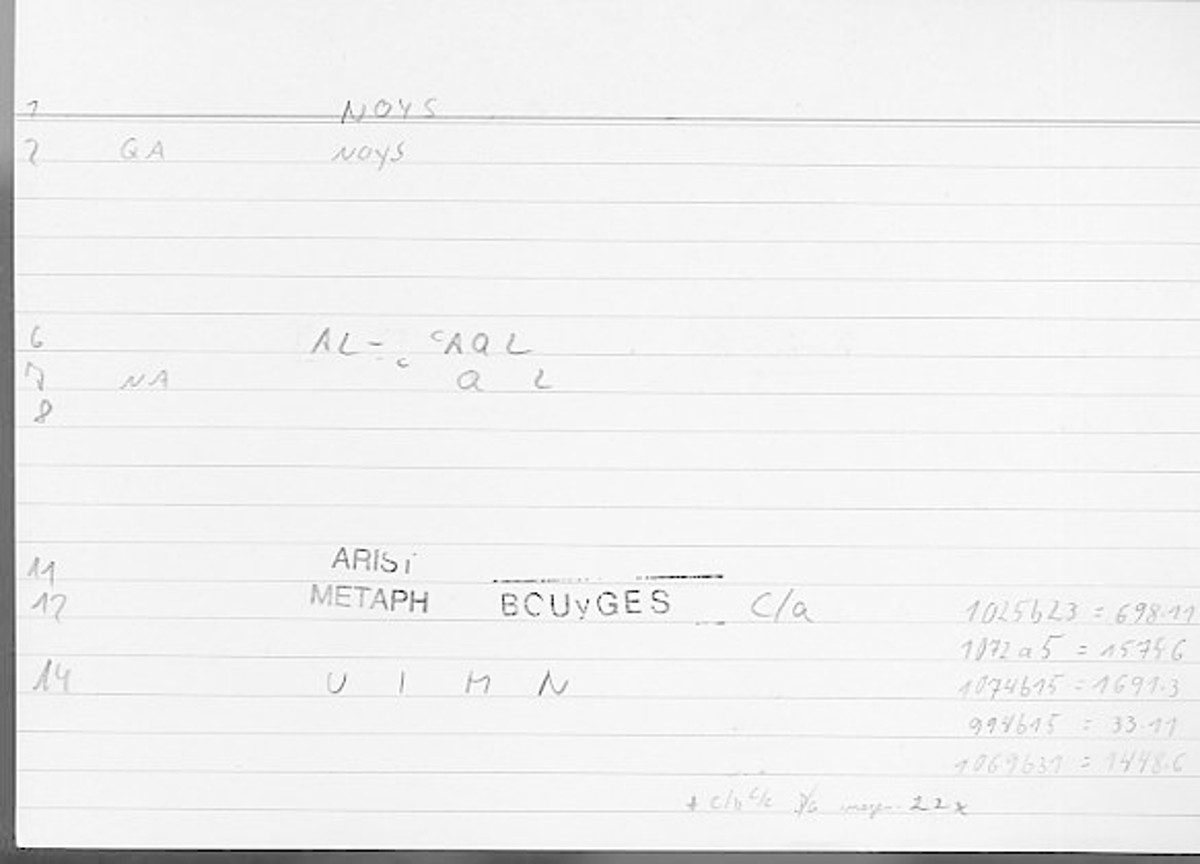 1 NOYS
2 GA NOYS
6 AL- cAQL
7 NA c Q L
8
11 ARIST
12 METAPH BOUYGES C/a 1025b23 = 698.11
1072a5 = 1575.6
14 U I M N 1074b15 = 1691.3
994b15 = 33.11
1069b31 = 1448.6
+ c/b c/c 22x